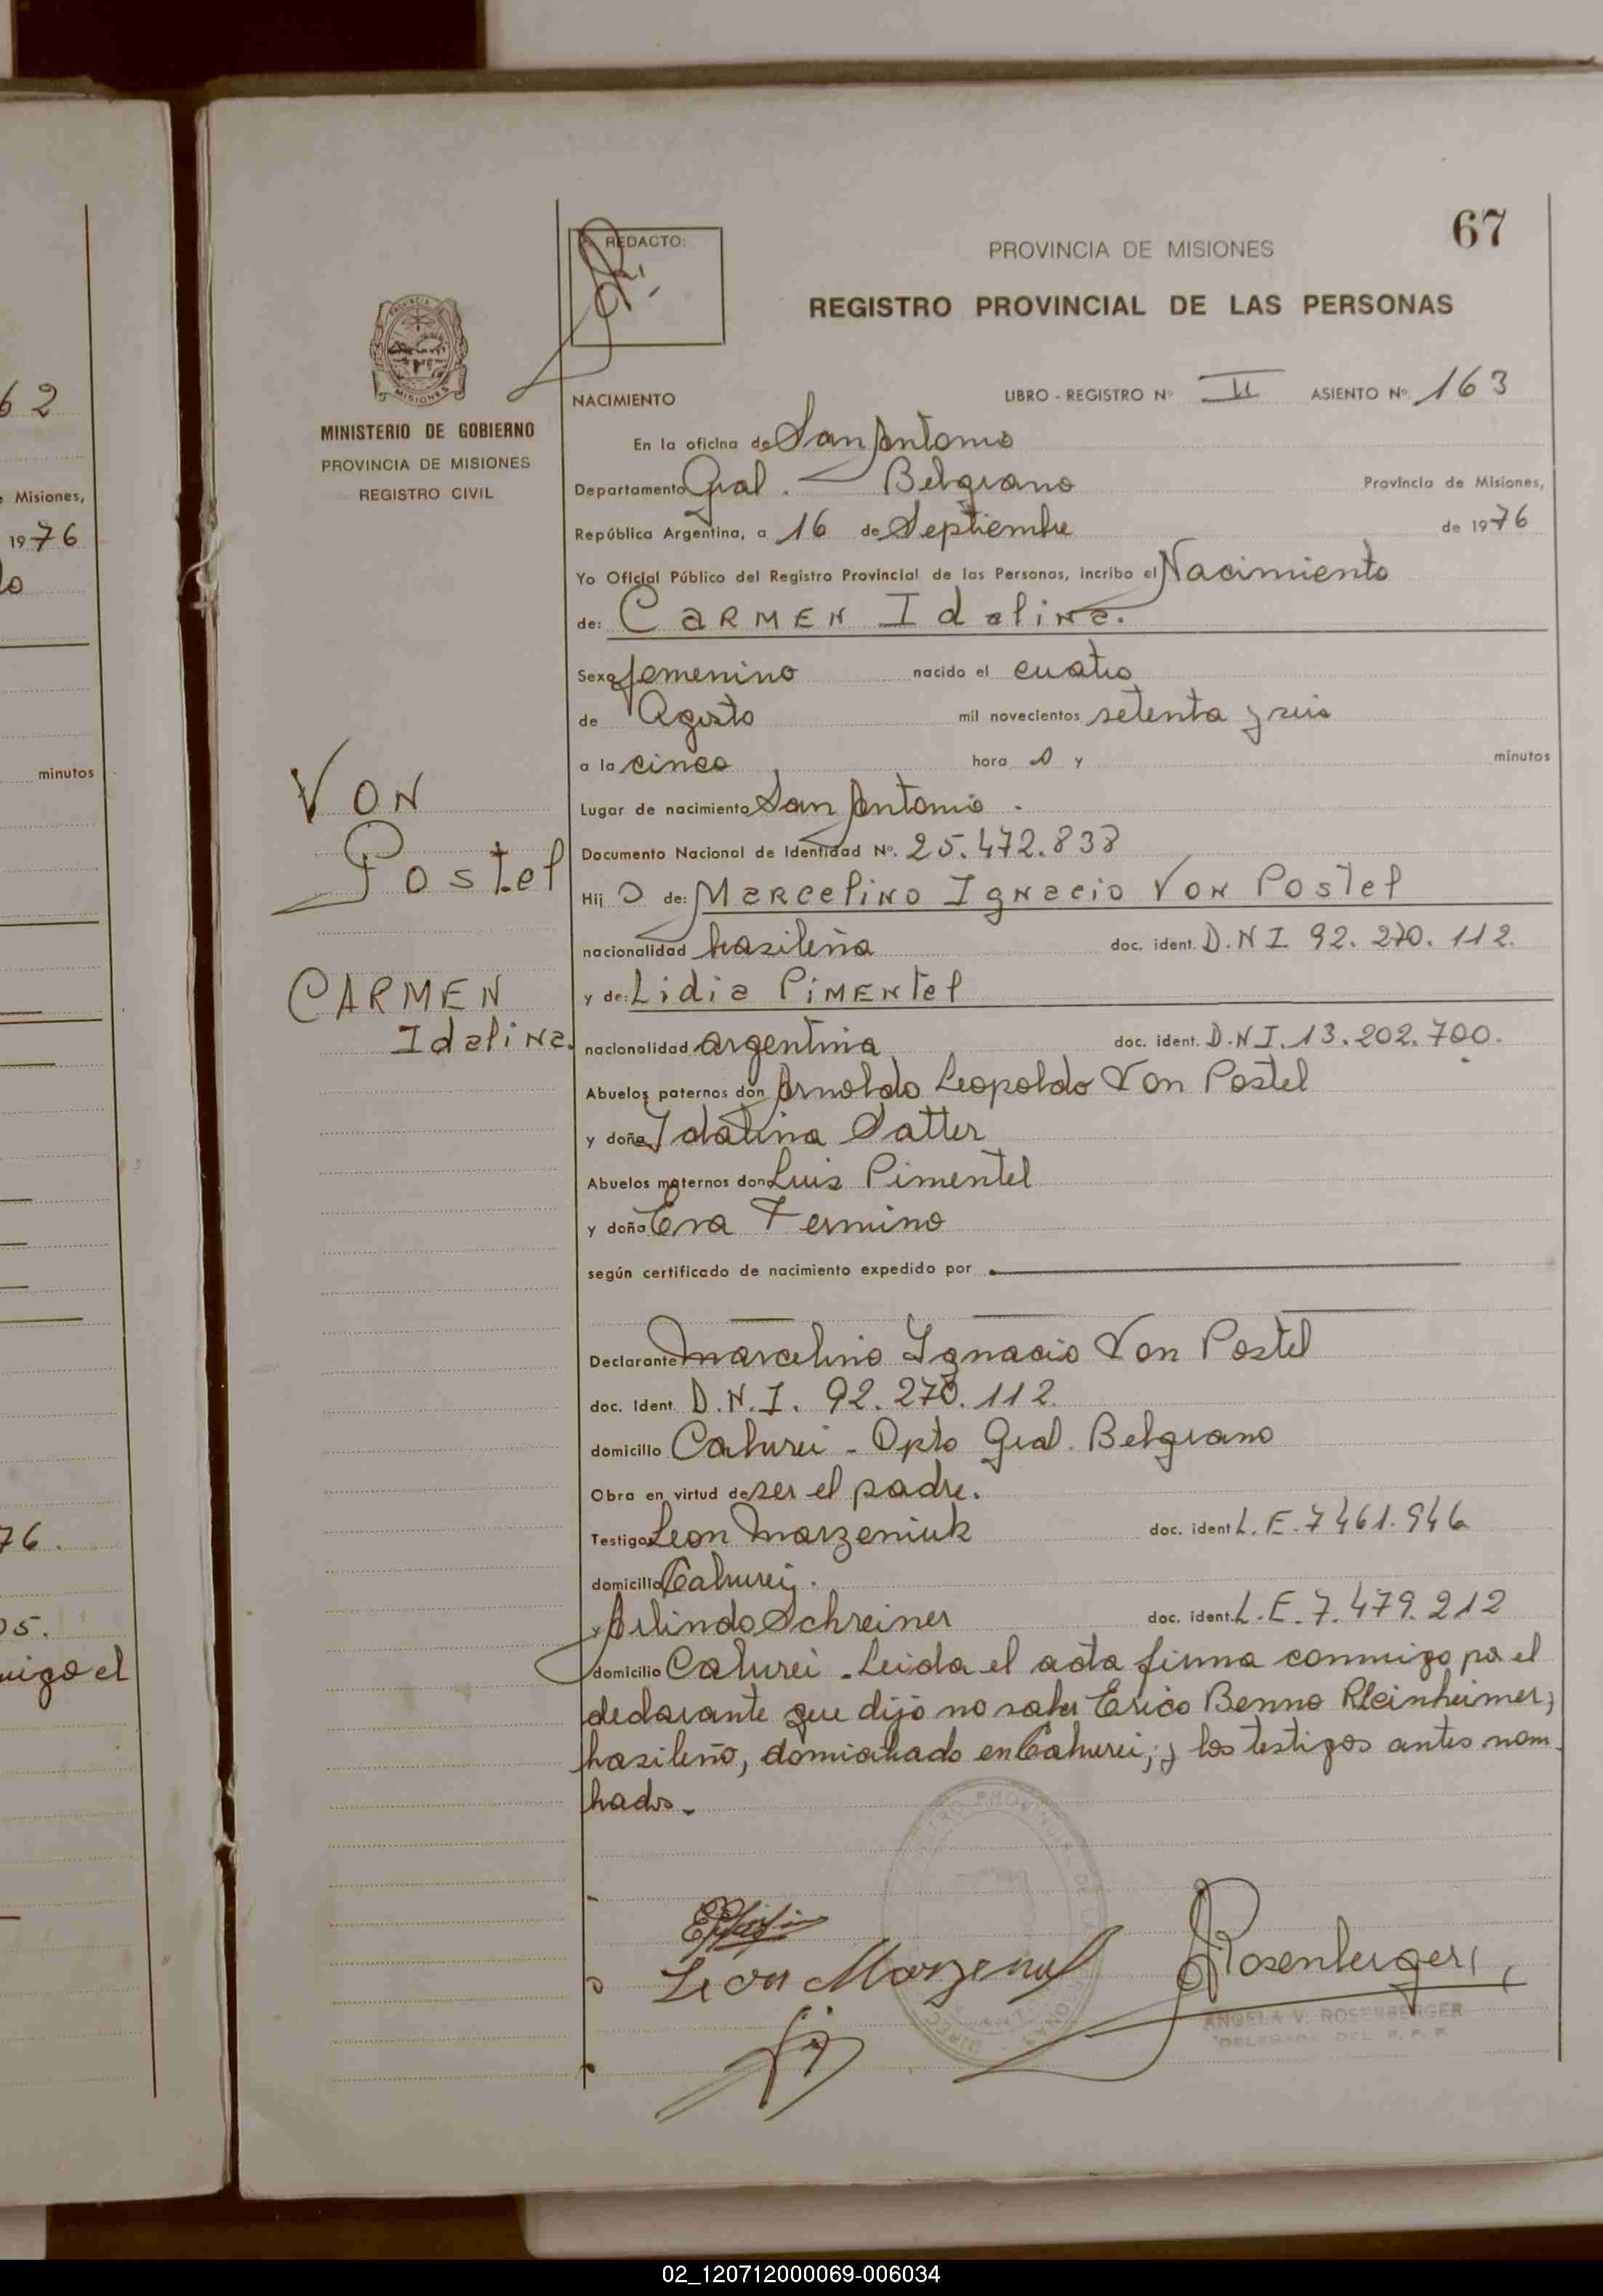 62
e Misiones,
1976
lo
minutos
76.
05.
migo el
67
REDACTO:
PROVINCIA DE MISIONES
REGISTRO PROVINCIAL DE LAS PERSONAS
MISIONES
MINISTERIO DE GOBIERNO
PROVINCIA DE MISIONES
REGISTRO CIVIL
VON
Postel
CARMEN
Idalina.
NACIMIENTO LIBRO - REGISTRO Nº II ASIENTO Nº 163
En la oficina de San Antonio
Departamento Gral. Belgrano Provincia de Misiones,
República Argentina, a 16 de Septiembre de 1976
Yo Oficial Público del Registro Provincial de las Personas, incribo el Nacimiento
de: CARMEN Idalina.
Sexo femenino nacido el cuatro
de Agosto mil novecientos setenta y seis
a la cinco hora s y minutos
Lugar de nacimiento San Antonio.
Documento Nacional de Identidad Nº. 25.472.838
Hij a de: Marcelino Ignacio Von Postel
nacionalidad brasileña doc. ident. D.N.I. 92.270.112.
y de: Lidia Pimentel
nacionalidad argentina doc. ident. D.N.I. 13.202.700.
Abuelos paternos don Arnoldo Leopoldo Von Postel
y doña Idalina Satter
Abuelos maternos don Luis Pimentel
y doña Eva Fermino
según certificado de nacimiento expedido por
Declarante Marcelino Ignacio Von Postel
doc. Ident. D.N.I. 92.270.112.
domicilio Caburei - Dpto Gral. Belgrano
Obra en virtud de ser el padre.
Testigo Leon Marzeniuk doc. ident L.E. 7461.946
domicilio Caburei.
y Arlindo Schreiner doc. ident. L.E. 7.479.212
domicilio Caburei. Leida el acta firma conmigo por el
declarante que dijo no saber Erico Benno Kleinheimer,
brasileño, domiciliado en Caburei, y los testigos antes nom-
brados.
Leon Marzeniuk
Rosenberger
ANGELA V. ROSENBERGER
DELEGADA DEL R.P.P.
02_120712000069-006034